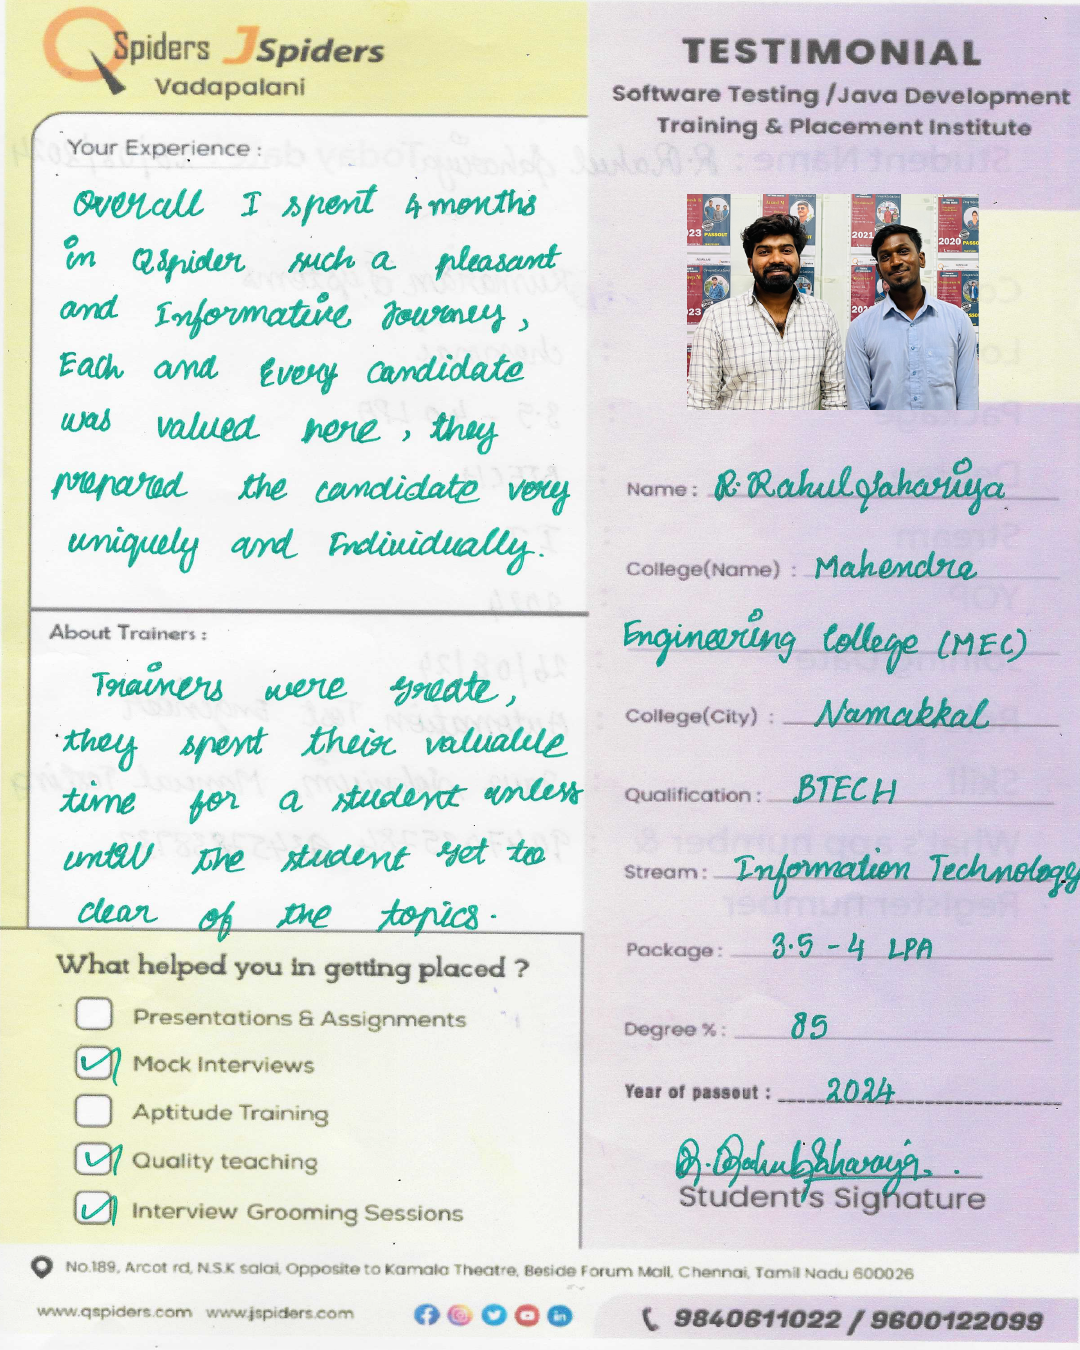 QSpiders JSpiders
Vadapalani
Your Experience :
Overall I spent 4 months
in QSpider such a pleasant
and Informative Journey,
Each and Every candidate
was valued here, they
prepared the candidate very
uniquely and Individually.
About Trainers :
Trainers were greate,
they spent their valuable
time for a student unless
until the student get to
clear of the topics.
What helped you in getting placed ?
Presentations & Assignments
Mock Interviews
Aptitude Training
Quality teaching
Interview Grooming Sessions
TESTIMONIAL
Software Testing /Java Development
Training & Placement Institute
2021
2020
PASSOUT
Name : R. Rahul Sahariya
College(Name) : Mahendra
Engineering College (MEC)
College(City) : Namakkal
Qualification : BTECH
Stream : Information Technology
Package : 3.5 - 4 LPA
Degree % : 85
Year of passout : 2024
Student's Signature
No.189, Arcot rd, N.S.K salai, Opposite to Kamala Theatre, Beside Forum Mall, Chennai, Tamil Nadu 600026
www.qspiders.com www.jspiders.com
9840611022 / 9600122099